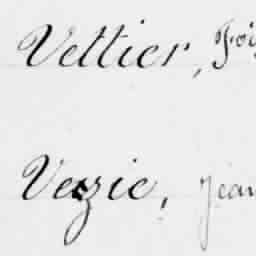 Vettier,
Vezie, Jean